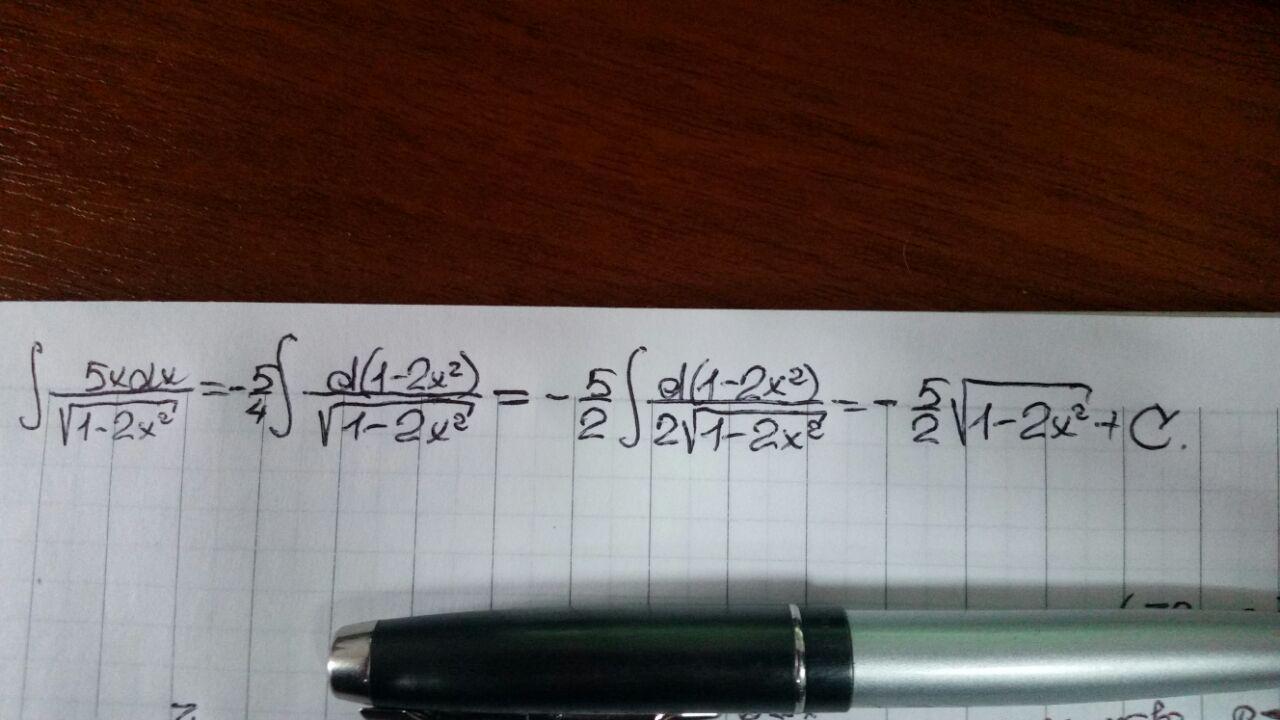 ∫ 5xdx/√(1-2x²) = -5/4 ∫ d(1-2x²)/√(1-2x²) = -5/2 ∫ d(1-2x²)/2√(1-2x²) = -5/2 √(1-2x²) + C.